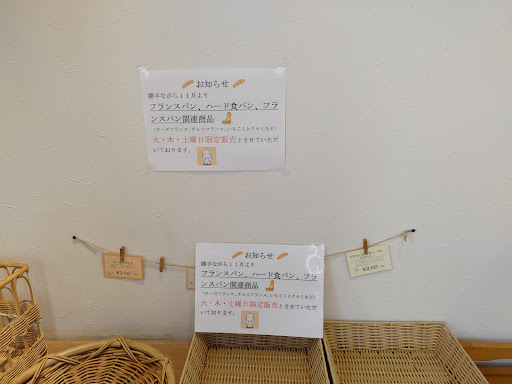 お知らせ
勝手ながら11月より
フランスパン、ハード食パン、フラ
ンスパン関連商品
(チーズフランス、チョコフランス、いちじくとクルミなど)
火・木・土曜日限定販売とさせていただ
いております。
お知らせ
勝手ながら11月より
フランスパン、ハード食パン、フラ
ンスパン関連商品
(チーズフランス、チョコフランス、いちじくとクルミなど)
火・木・土曜日限定販売とさせていただ
いております。
¥230
¥250